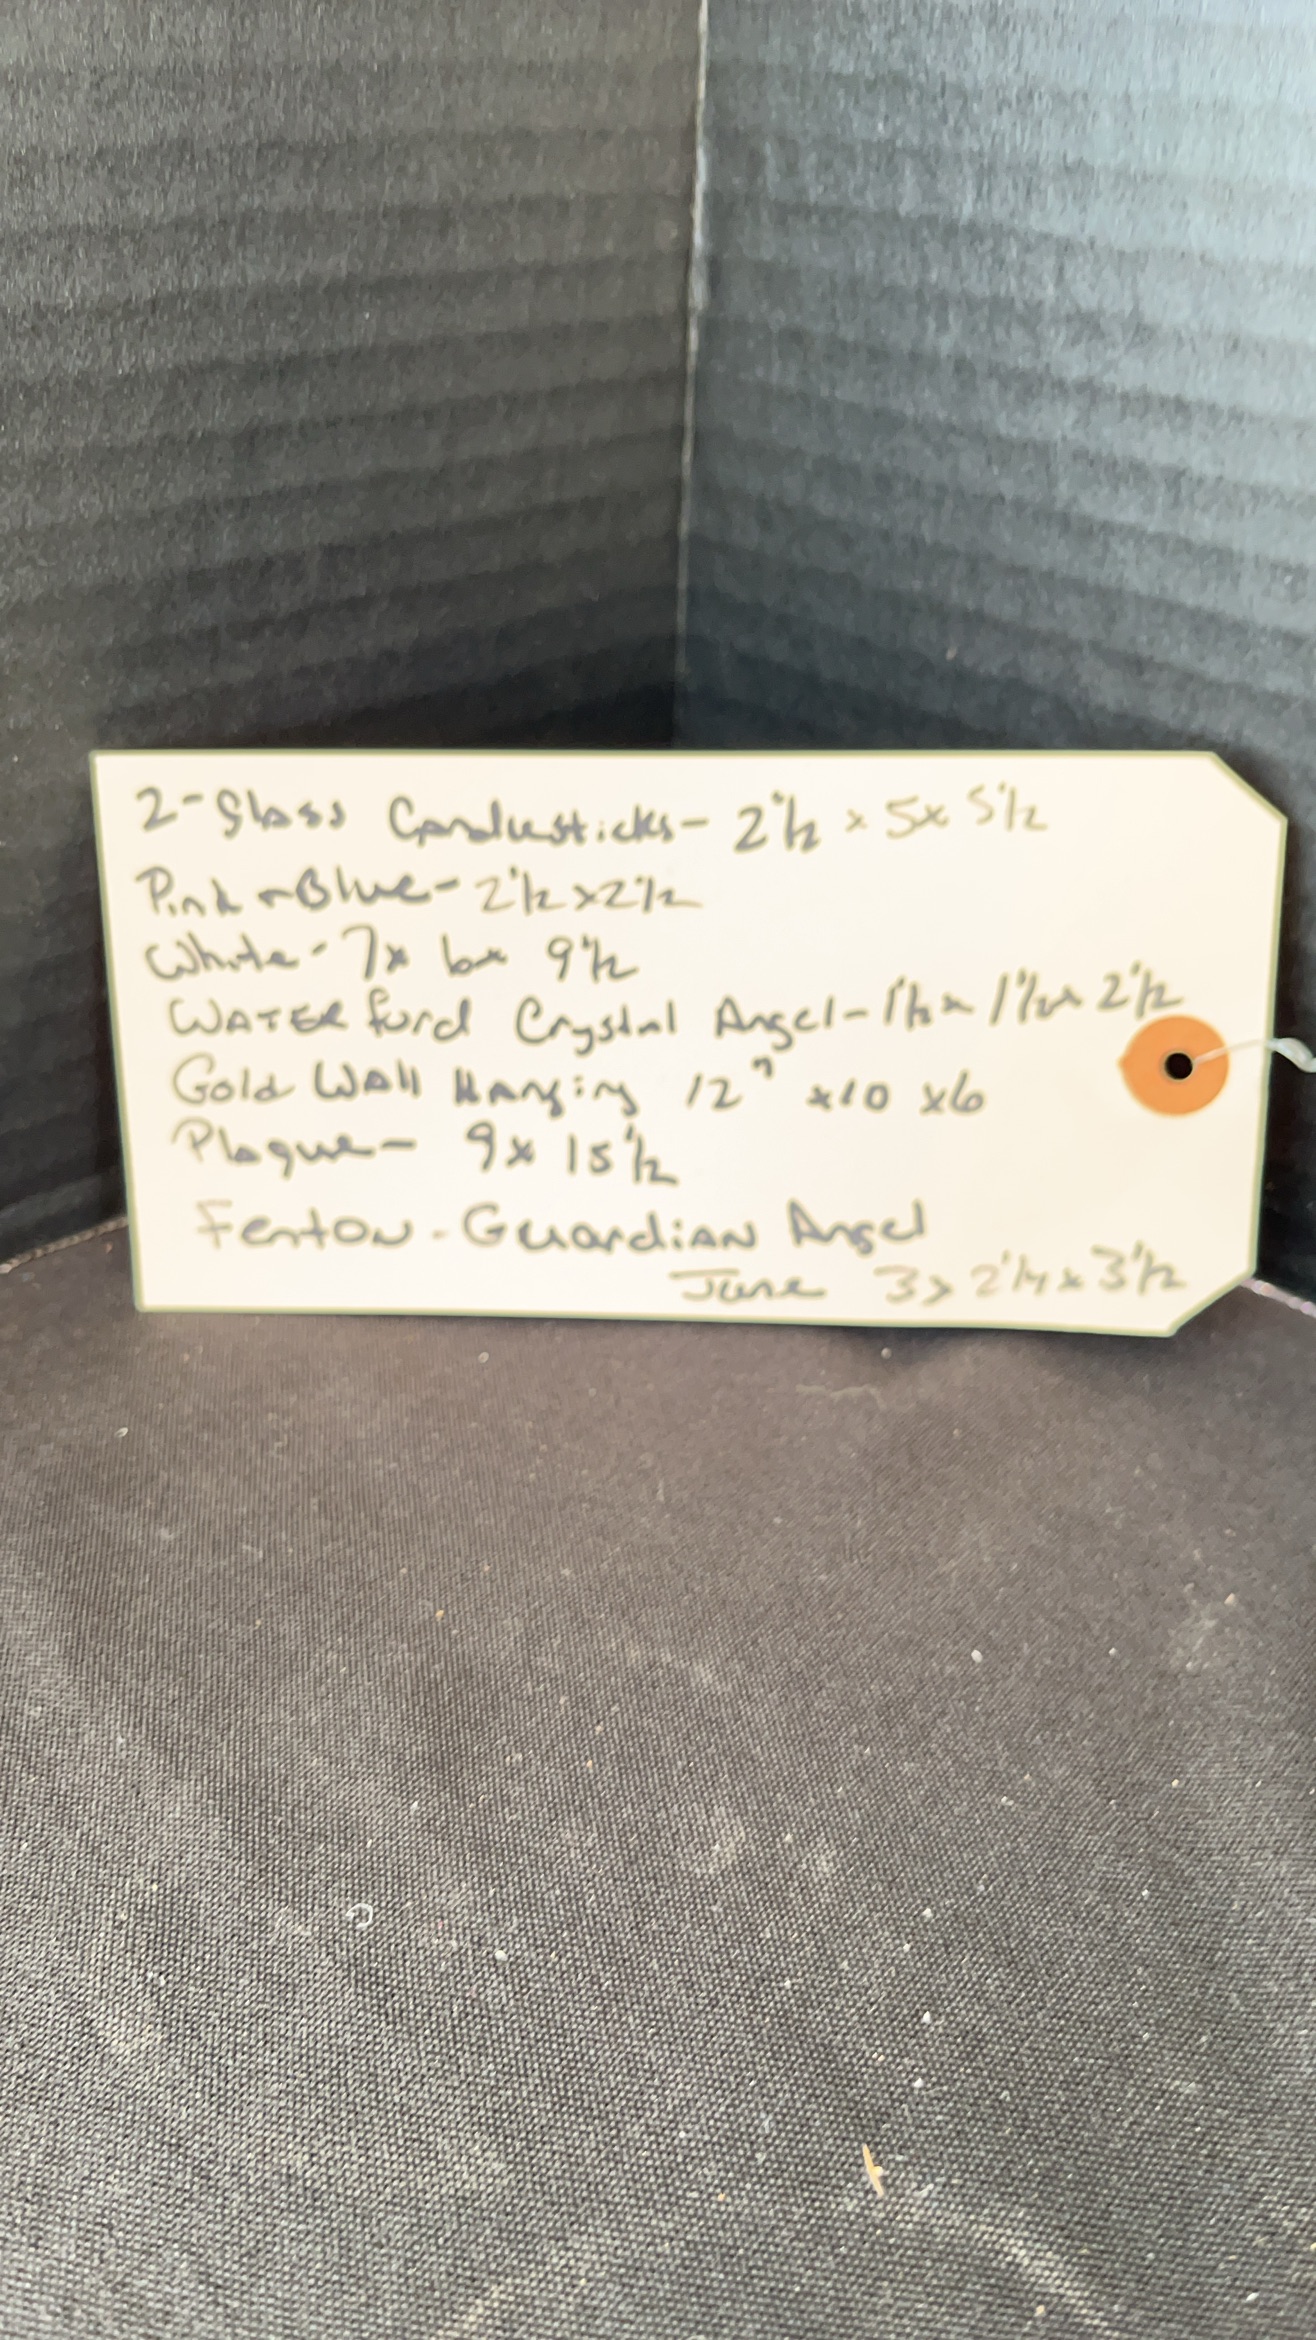 2-Glass Candlesticks- 2 1/2 x 5x 5 1/2
Pink + Blue- 2 1/2 x 2 1/2
White- 7x 6x 9 1/2
WATERford Crystal Angel- 1 1/2 x 1 1/2 x 2 1/2
Gold Wall Hanging 12" x10 x6
Plaque- 9x 15 1/2
Fenton-Guardian Angel
June 3x 2 1/4 x 3 1/2